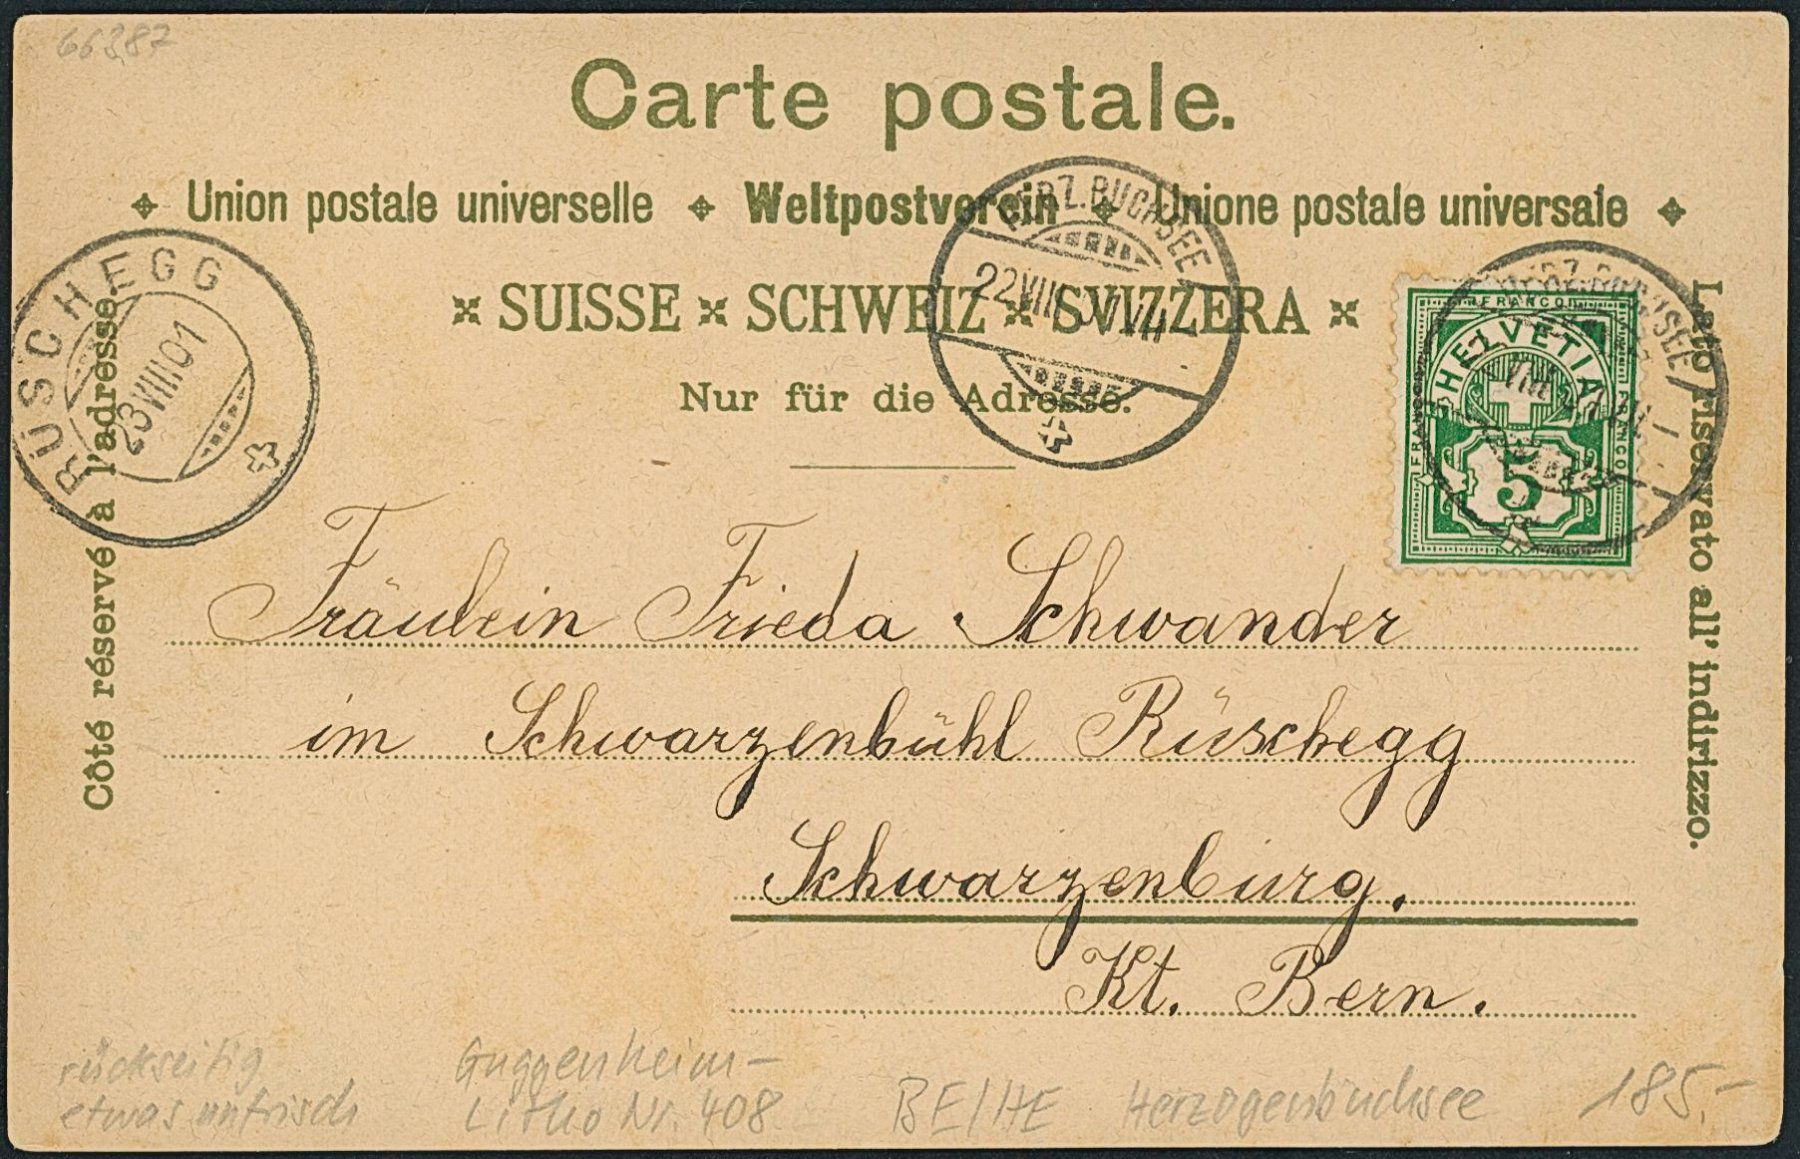 66387
Carte postale.
Union postale universelle Weltpostverein Unione postale universale
SUISSE SCHWEIZ SVIZZERA
Nur für die Adresse.
Côté réservé à l'adresse.
Lato riservato all' indirizzo.
RÜSCHEGG
23 VIII 01
HERZ.BUCHSEE
22 VIII
HERZ.BUCHSEE
VIII
FRANCO
FRANCO
FRANCO
HELVETIA
5
Fräulein Frieda Schwander
im Schwarzenbühl Rüschegg
Schwarzenburg.
Kt. Bern.
rückseitig
etwas unfrisch
Guggenheim-
Litho Nr. 408
BE/HE
Herzogenbuchsee
185.-